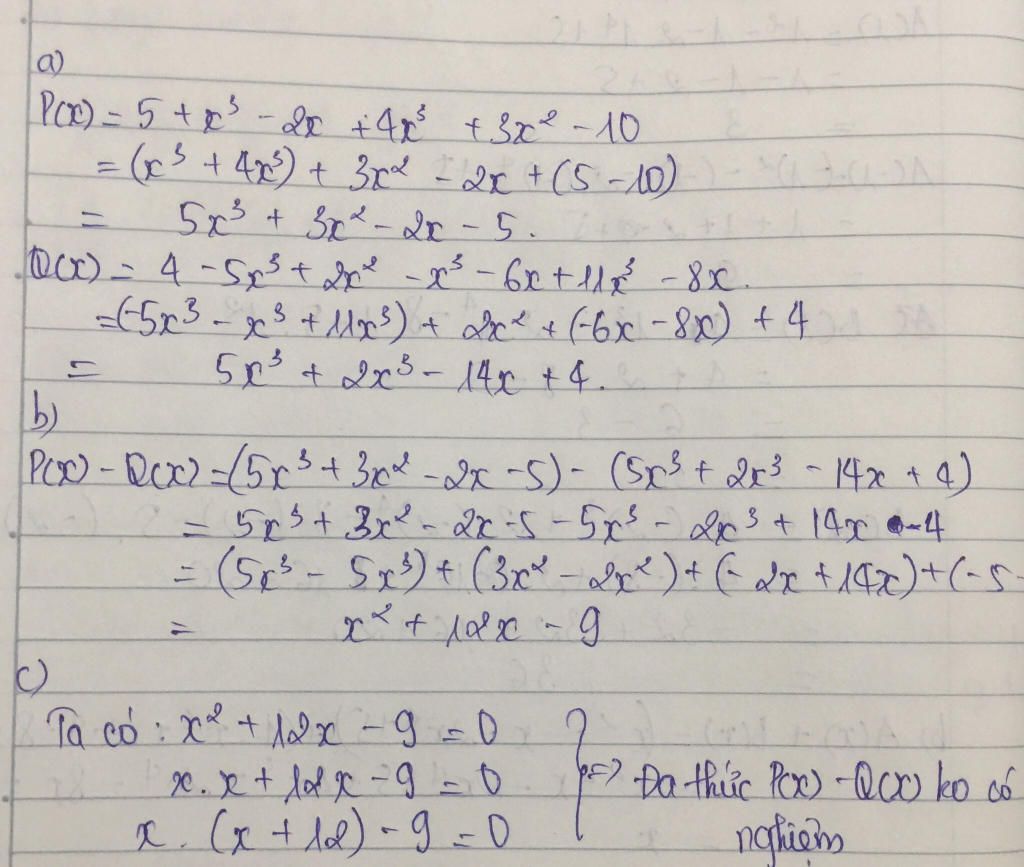 a)
P(x) = 5 + x³ - 2x + 4x³ + 3x² - 10
= (x³ + 4x³) + 3x² - 2x + (5 - 10)
= 5x³ + 3x² - 2x - 5.
Q(x) = 4 - 5x³ + 2x² - x³ - 6x + 11x³ - 8x.
= (-5x³ - x³ + 11x³) + 2x² + (-6x - 8x) + 4
= 5x³ + 2x³ - 14x + 4.
b)
P(x) - Q(x) = (5x³ + 3x² - 2x - 5) - (5x³ + 2x³ - 14x + 4)
= 5x³ + 3x² - 2x - 5 - 5x³ - 2x³ + 14x - 4
= (5x³ - 5x³) + (3x² - 2x²) + (- 2x + 14x) + (- 5 -
= x² + 12x - 9
c)
Ta có : x² + 12x - 9 = 0
x . x + 12x - 9 = 0 } => Đa thức P(x) - Q(x) ko có
x . (x + 12) - 9 = 0 nghiệm